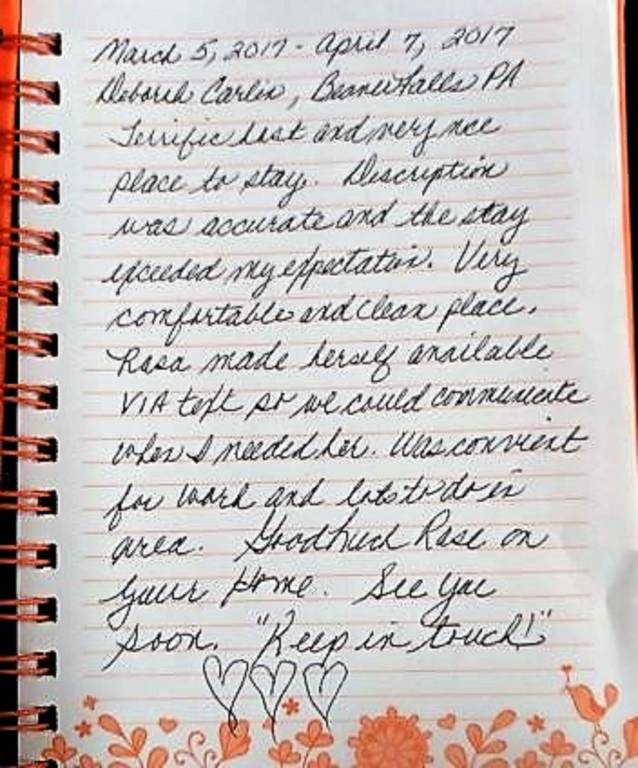 March 5, 2017 - April 7, 2017
Deborah Carlin, Beaver Falls PA
Terrific host and very nce
place to stay. Description
was accurate and the stay
exceeded my expectation. Very
comfortable and clean place.
Rosa made herself available
VIA text so we could communicate
when I needed her. Was convient
for work and lots to do in
area. Good luck Rose on
your home. See you
soon. "Keep in touch!"